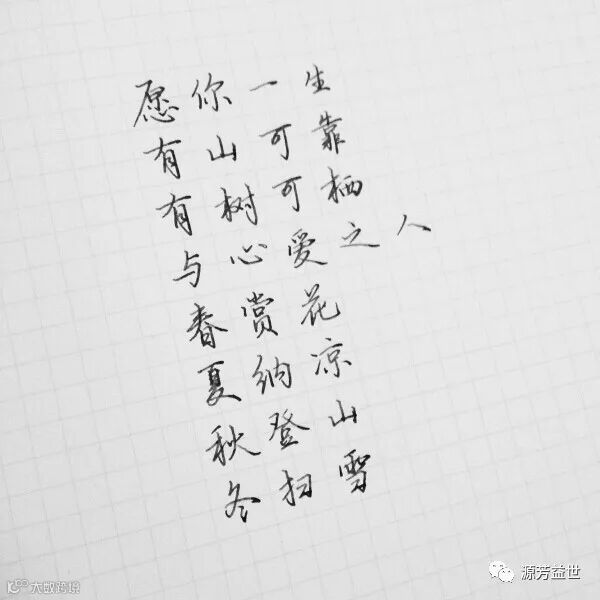 愿你一生
有山可靠
有树可栖
与心爱之人
春赏花
夏纳凉
秋登山
冬扫雪
源芳益世
大数跨境